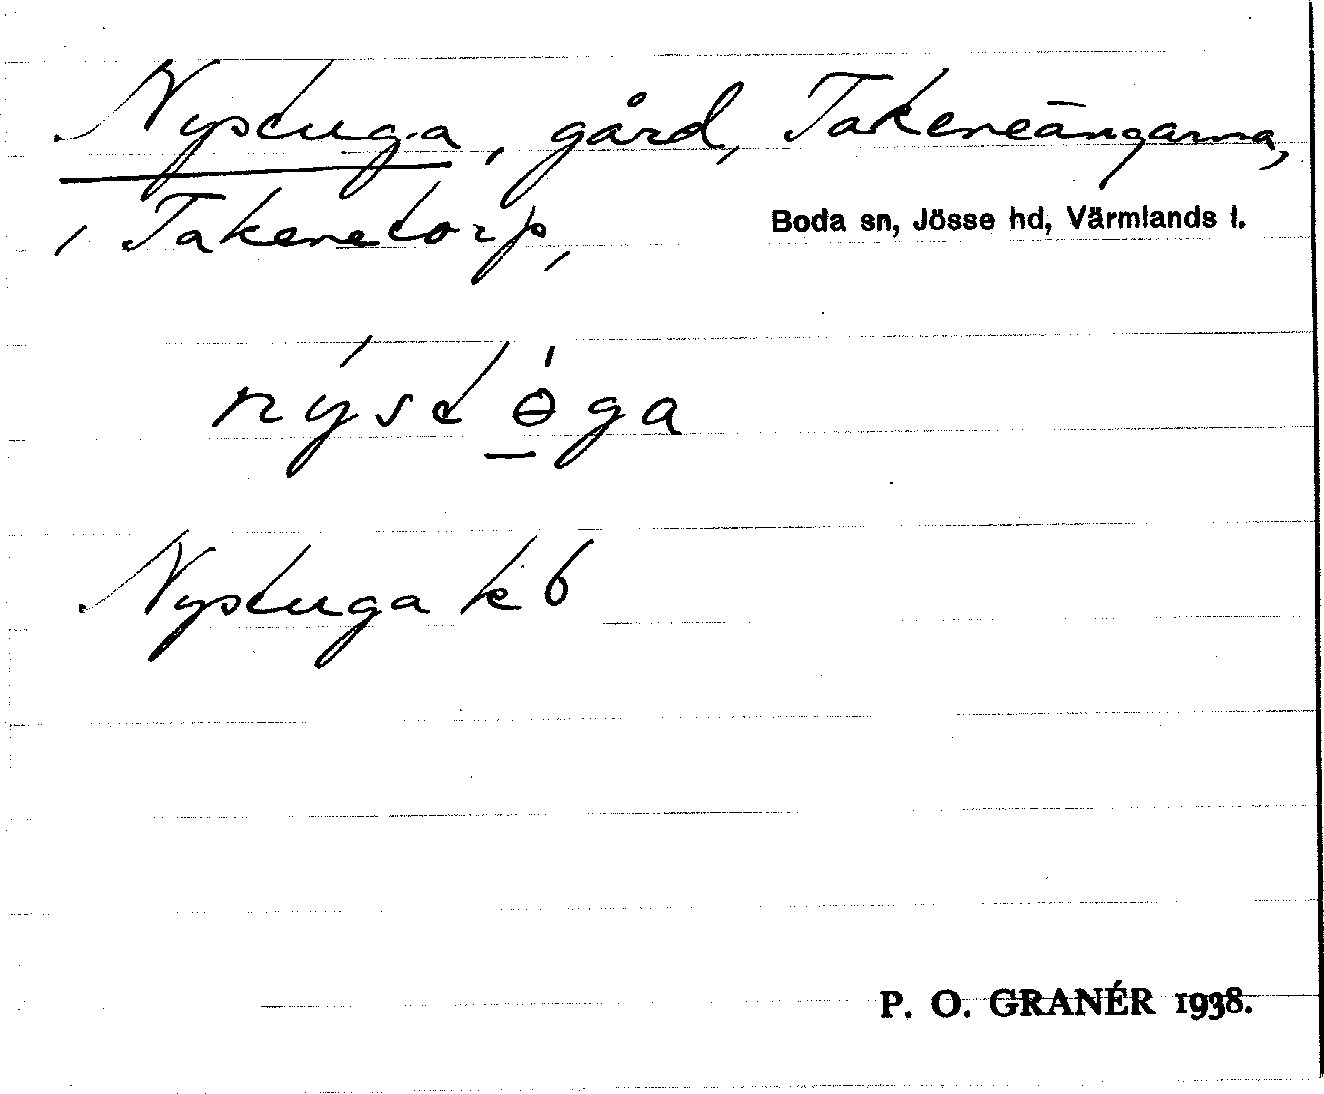 Nystuga, gård, Takeneängarna,
i Takenetorp,
Boda sn, Jösse hd, Värmlands l.
nýstɵ̀ga
Nystuga kb
P. O. GRANÉR 1938.